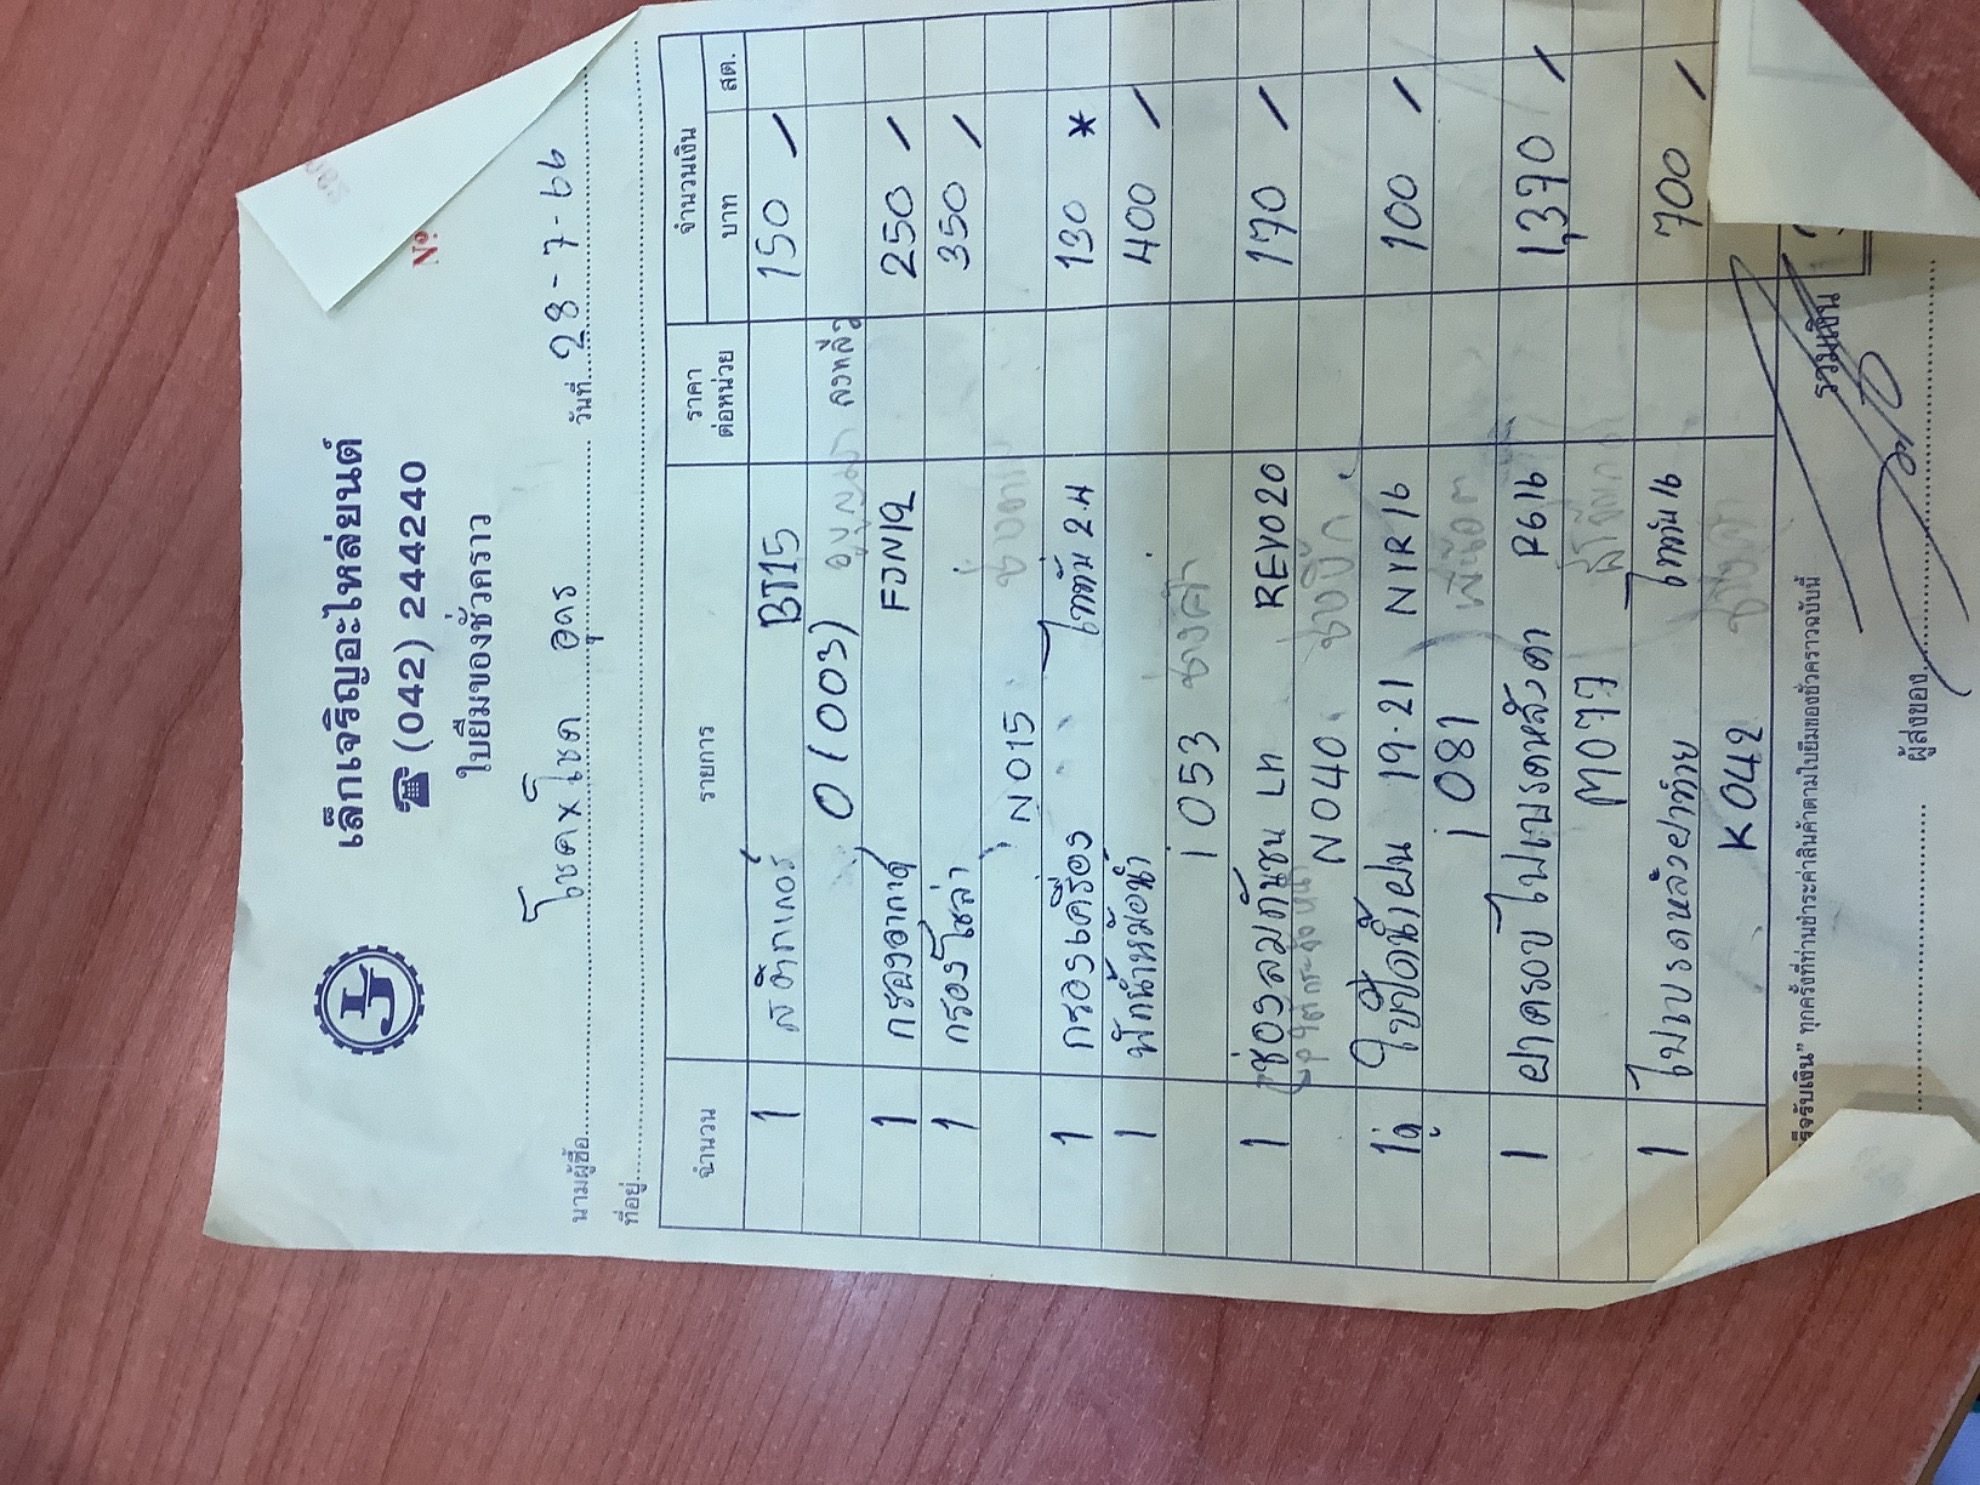 เล็กเจริญอะไหล่ยนต์
☎ (042) 244240
ใบยืมของชั่วคราว
Nº
นามผู้ซื้อ โชคxโชค อุดร วันที่ 28-7-66
ที่อยู่
จำนวน รายการ ราคาต่อหน่วย จำนวนเงิน
บาท สต.
1 สติกเกอร์ BT15 150 /
0(003)
1 กรองอากาศ 250 /
1 กรองโซล่า 350 /
N015
1 กรองเครื่อง ไททัน 2.4 130 *
1 พักน้ำหม้อน้ำ 400 /
i 053
1 ช่องลมกันชน LH REVO20 170 /
N040
1คู่ ใบปัดน้ำฝน 19-21 NYR 16 100 /
i 081
1 ฝาครอบไฟเบรคหลังคา P616 1,370 /
M077
1 ไฟเบรคหลังฝาท้าย ไททัน 16 700 /
K042
รับเงิน" ทุกครั้งที่ท่านชำระค่าสินค้าตามใบยืมของชั่วคราวฉบับนี้
รวมเงิน
ผู้ส่งของ